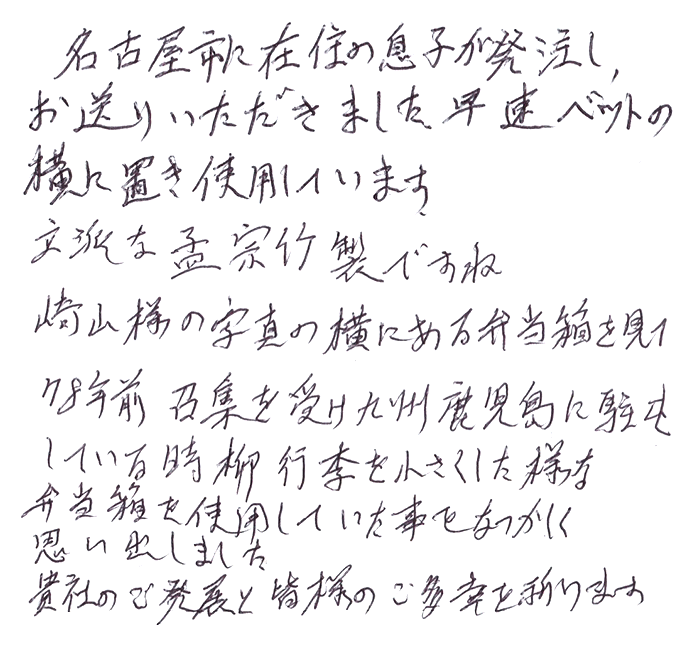 名古屋市に在住の息子が発注し、
お送りいただきました、早速ベットの
横に置き使用しています、
立派な孟宗竹製ですね
崎山様の写真の横にある弁当箱を見て
78年前 召集を受け九州鹿児島に駐屯
している時 柳行李を小さくした様な
弁当箱を使用していた事をなつかしく
思い出しました
貴社のご発展と皆様のご多幸を祈ります